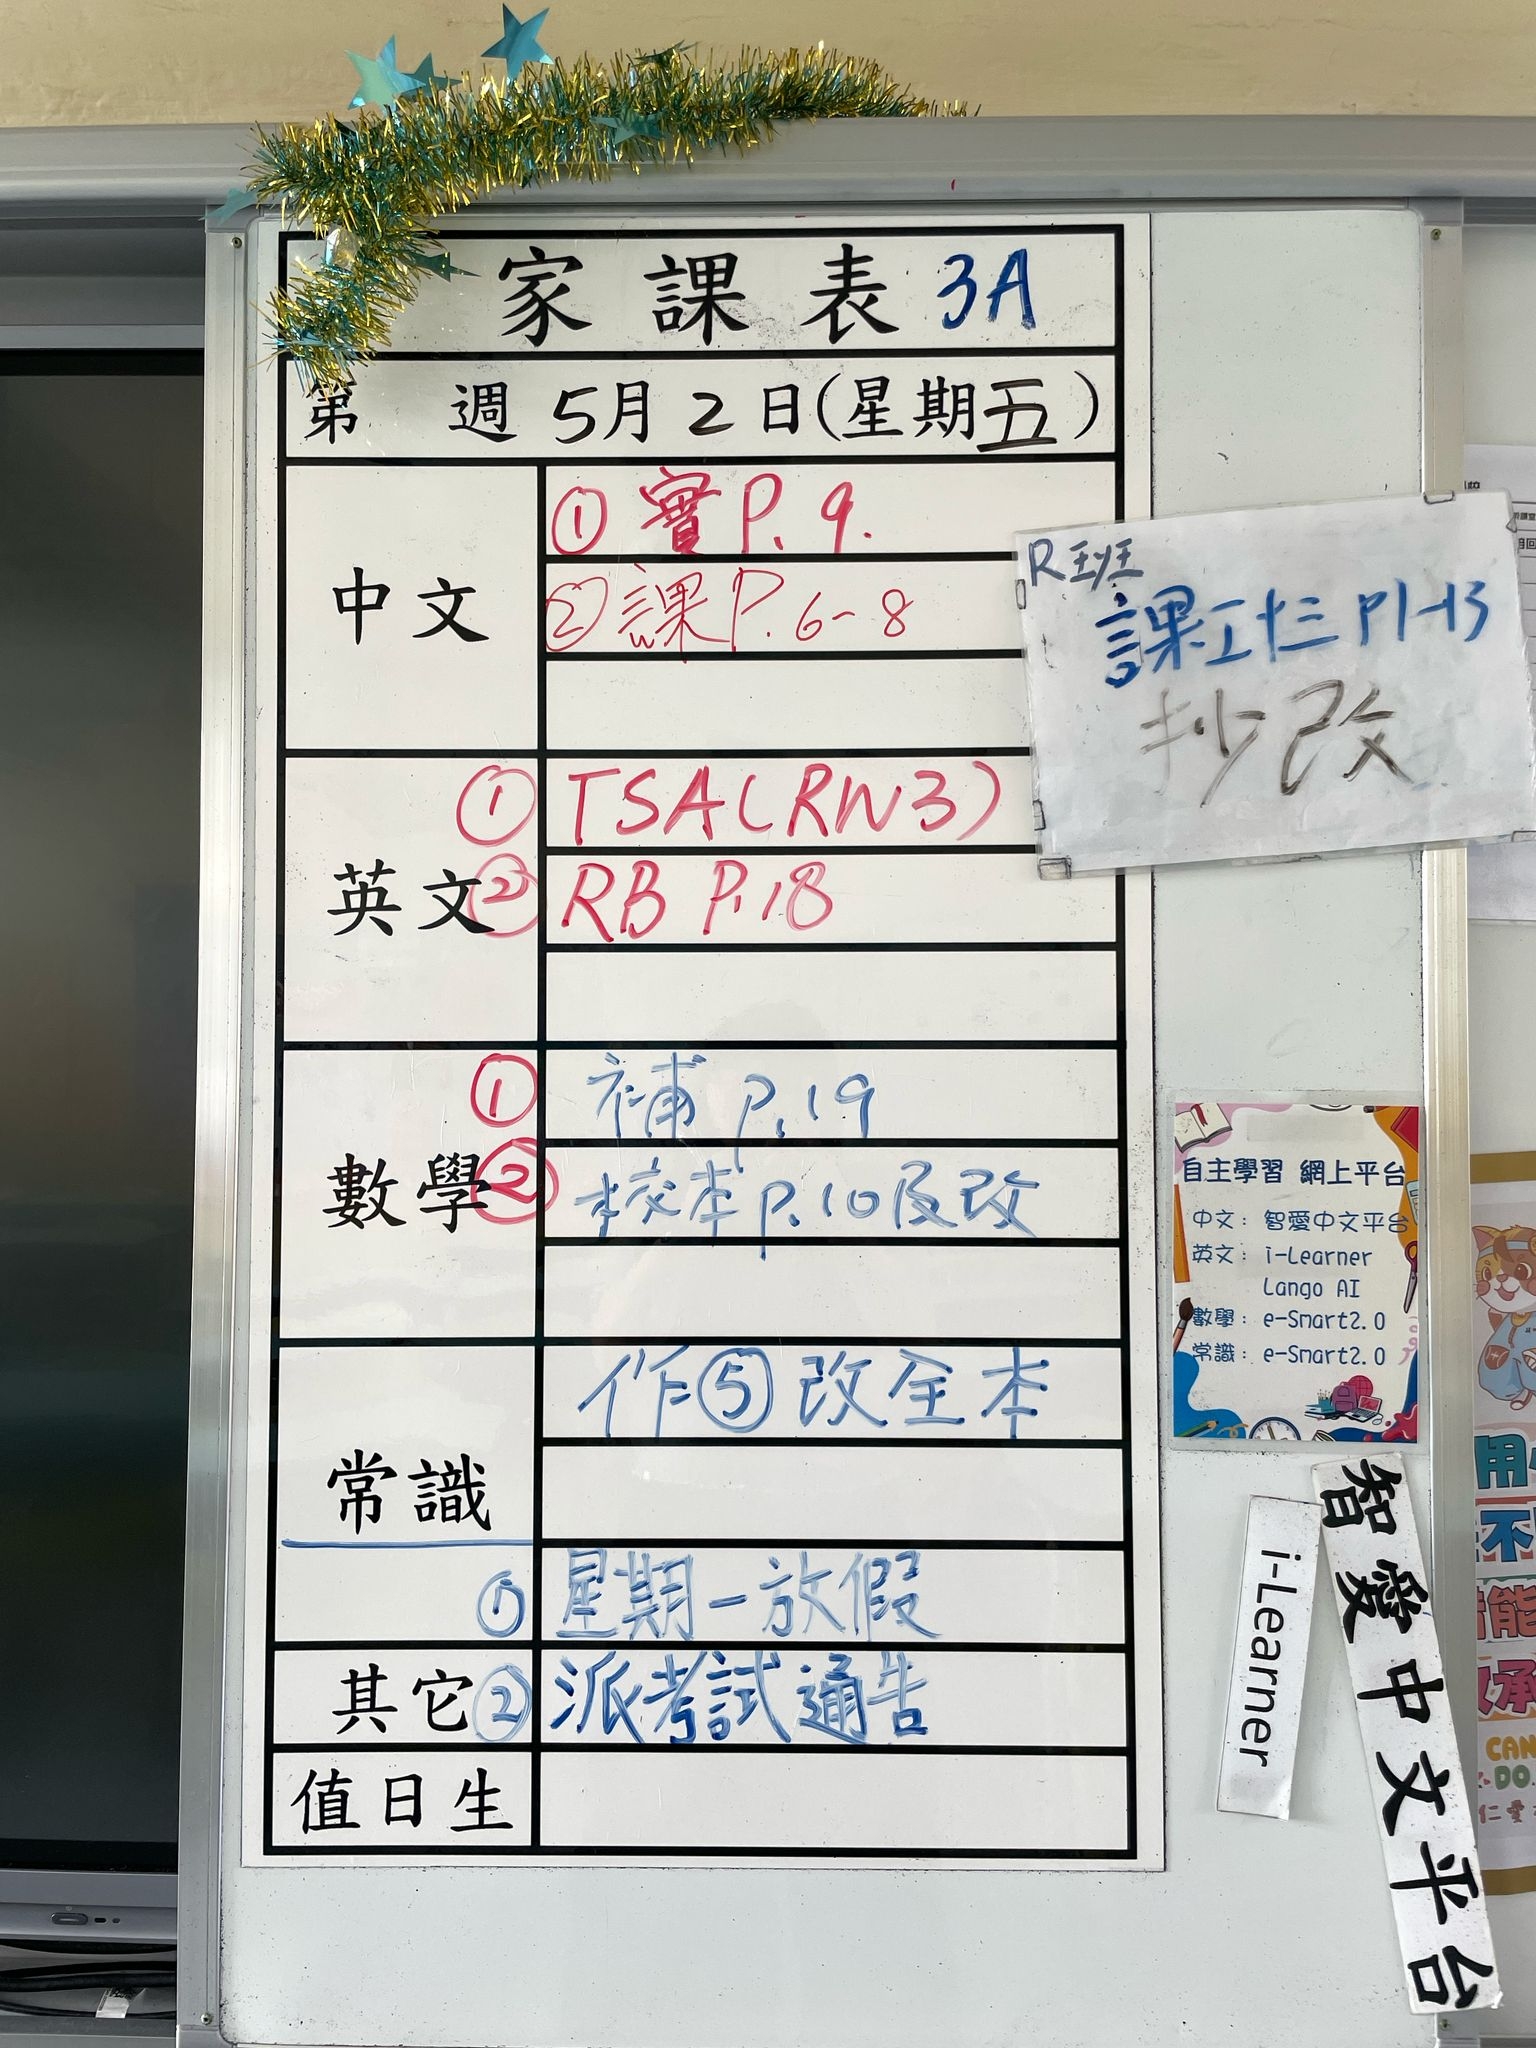 家課表 3A
第 週 5月2日(星期五)
中文
① 實 P. 9.
② 課 P. 6-8
R班
P1-13
抄改
英文
① TSA(RW3)
② RB P.18
數學
① 補 P.19
② 校本 P.10及改
常識
作⑤改全本
① 星期一放假
其它
② 派考試通告
值日生
自主學習 網上平台
中文: 智愛中文平台
英文: i-Learner
Lango AI
數學: e-Smart2.0
常識: e-Smart2.0
i-Learner
智愛中文平台
CAN
DO